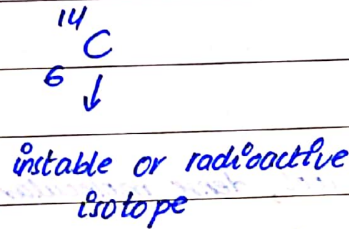 14
C
6
↓
instable or radioactive
isotope